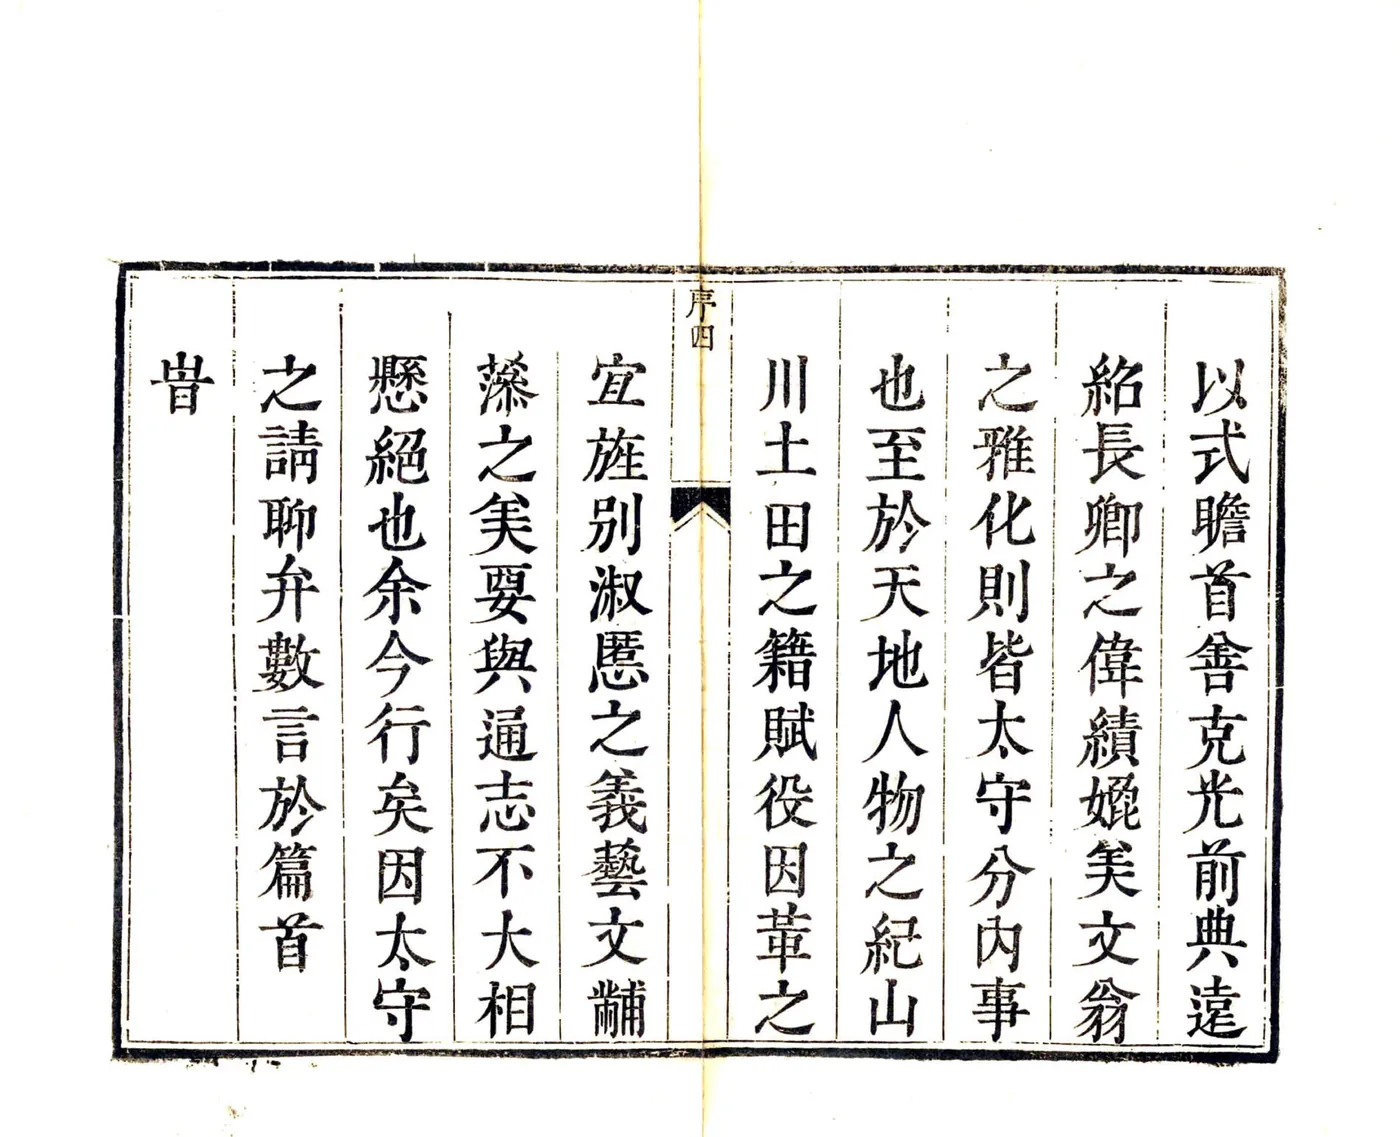 以式瞻首善克光前典遠
紹長卿之偉績媲美文翁
之雅化則皆太守分内事
也至於天地人物之紀山
川土田之籍賦役因革之
序四
宜旌别淑慝之義藝文黼
藻之美要與通志不大相
懸絕也余今行矣因太守
之請聊弁數言於篇首
旹